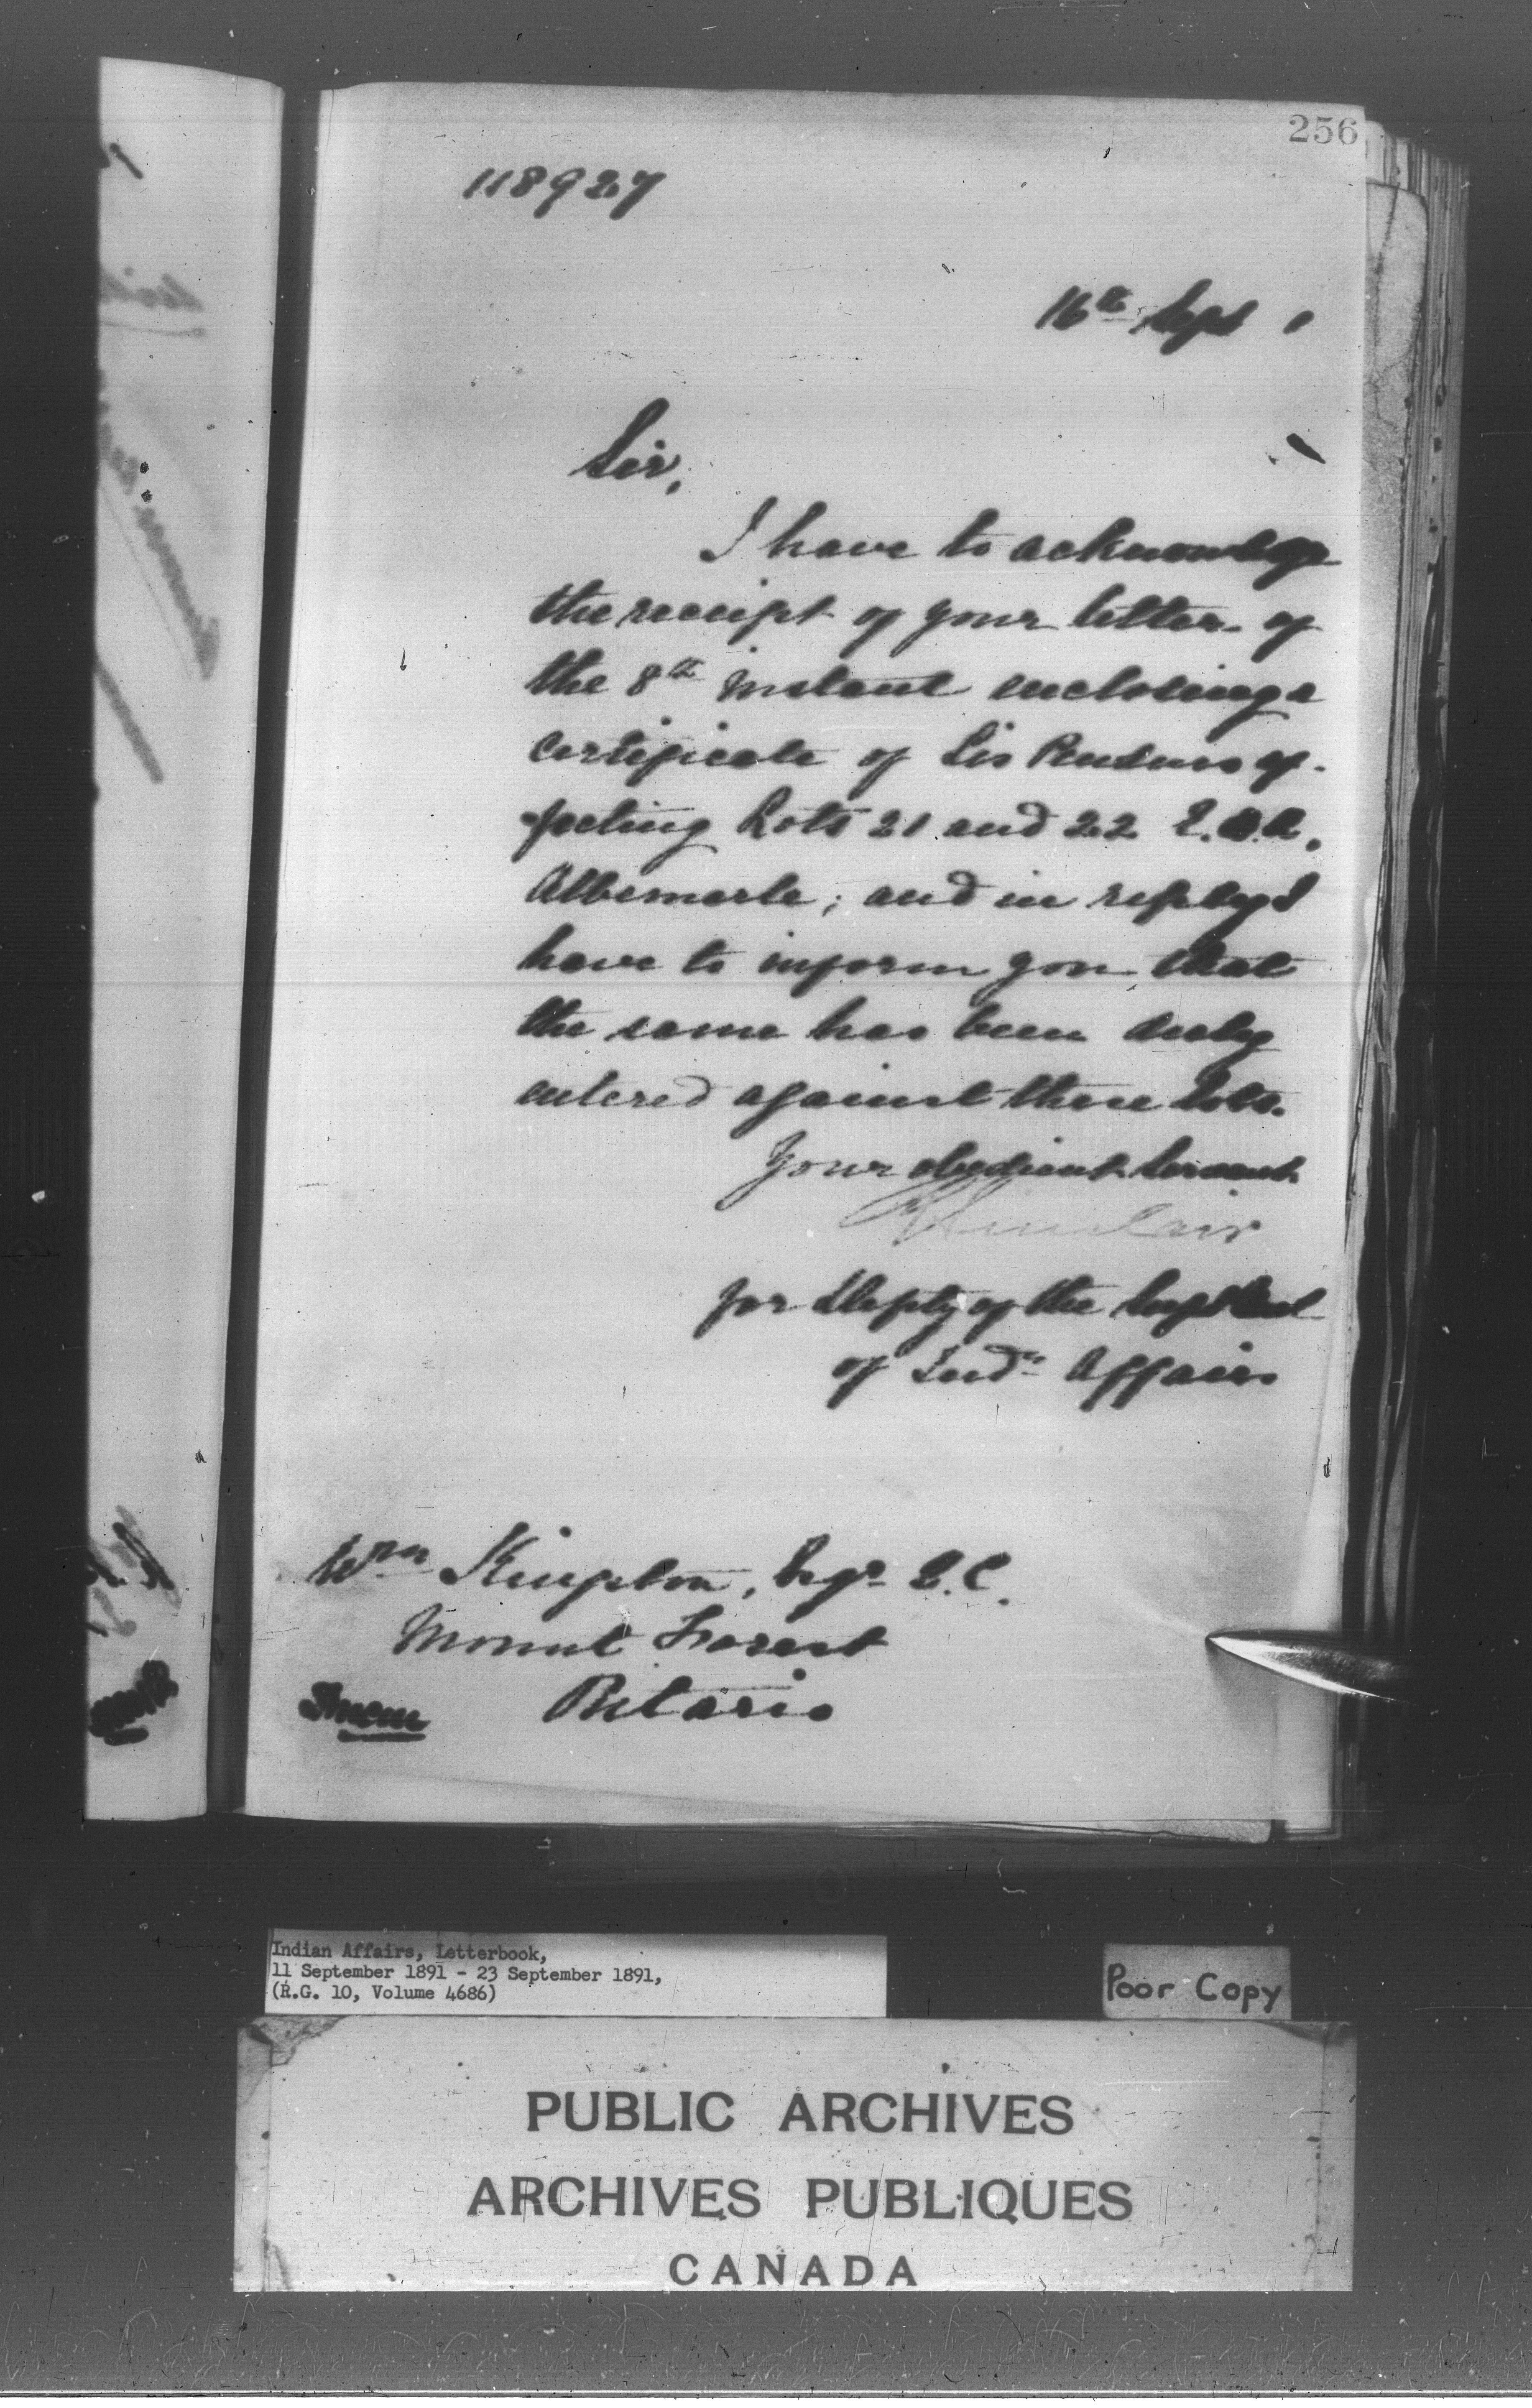 256
118927
16th Sept 1
Sir,
I have to acknowledge
the receipt of your letter of
the 8th instant enclosing a
Certificate of Lis Pendens af-
fecting Lots 21 and 22 E.B.R.
Albemarle; and in reply I
have to inform you that
the same has been duly
entered against these lots.
Your obedient Servant
Sinclair
for Depty of the Supt Genl
of Indn Affairs
Wm Kingston, Esqr Q.C.
Mount Forest
Ontario
Indian Affairs, Letterbook,
11 September 1891 - 23 September 1891,
(R.G. 10, Volume 4686)
Poor Copy
PUBLIC ARCHIVES
ARCHIVES PUBLIQUES
CANADA